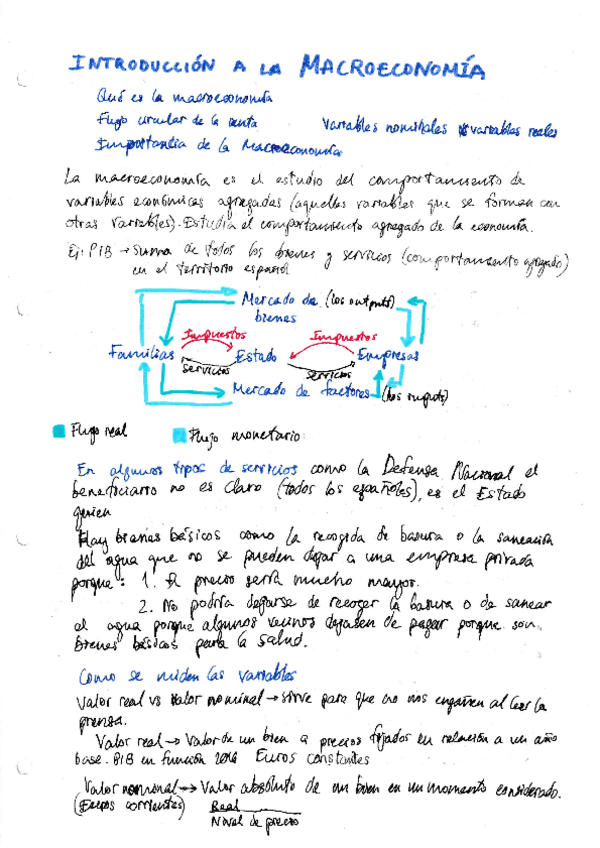 INTRODUCCIÓN A LA MACROECONOMÍA
Qué es la macroeconomía
Flujo circular de la renta
Variables nominales vs variables reales
Importancia de la Macroeconomía
La macroeconomía es el estudio del comportamiento de
variables económicas agregadas (aquellas variables que se forman con
otras variables). Estudia el comportamiento agregado de la economía.
Ej: PIB → Suma de todos los bienes y servicios (comportamiento agregado)
en el territorio español
Mercado de (los outputs)
bienes
Impuestos Impuestos
Familias Estado Empresas
Servicios Servicios
Mercado de factores (los inputs)
Flujo real Flujo monetario
En algunos tipos de servicios como la Defensa Nacional el
beneficiario no es claro (todos los españoles), es el Estado
quien
Hay bienes básicos como la recogida de basura o la saneación
del agua que no se pueden dejar a una empresa privada
porque: 1. El precio sería mucho mayor.
2. No podría dejarse de recoger la basura o de sanear
el agua porque algunos vecinos dejasen de pagar porque son
bienes básicos para la salud.
Como se miden las variables
Valor real vs Valor nominal → sirve para que no nos engañen al leer la
prensa.
Valor real → Valor de un bien a precios fijados en relación a un año
base. PIB en función 2016 Euros constantes
Valor nominal → Valor absoluto de un bien en un momento considerado.
(Euros corrientes) Real
Nivel de precio